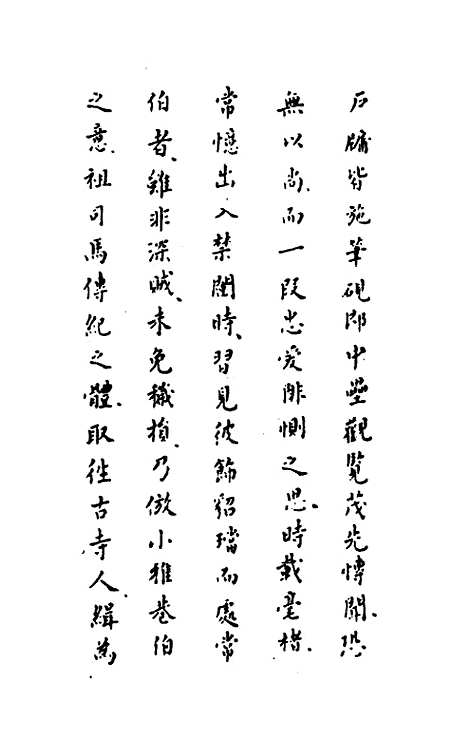 戶牖皆施筆硯即中壘觀覽茂先博聞恐
無以尚而一段忠愛悱惻之思時載毫楮
常憶出入禁闥時習見彼飾貂璫而處常
伯者雖非深賊未免穢損乃倣小雅巷伯
之意祖司馬傳紀之體取往古寺人緝為